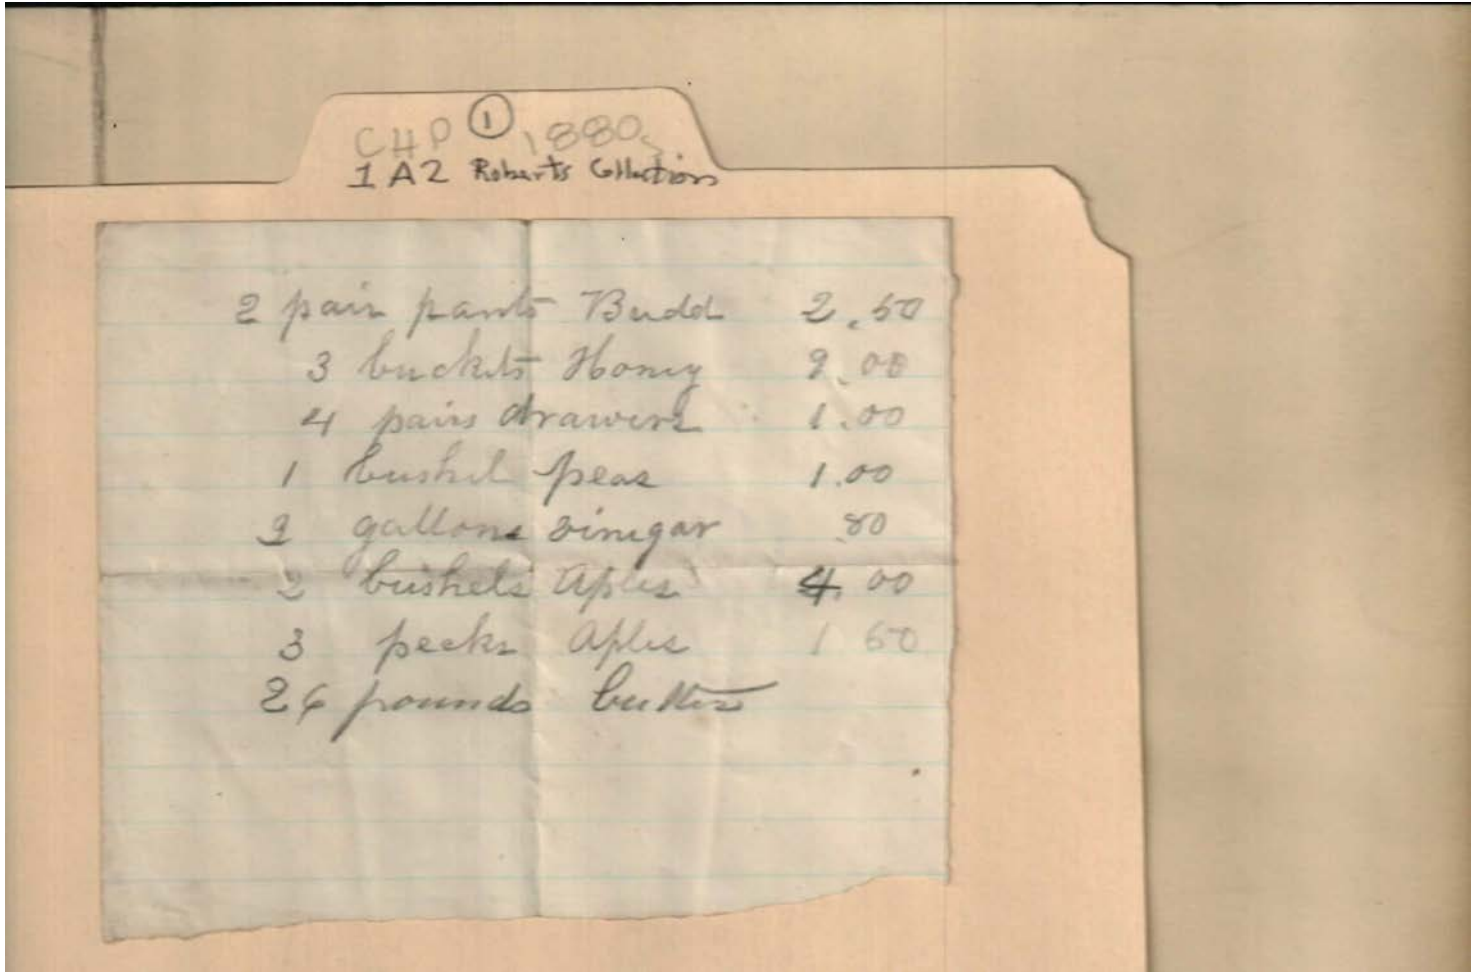 CHP ① 1880s
1A2 Roberts Collection
2 pair pants Budd 2.50
3 buckets Honey 2.00
4 pairs drawers 1.00
1 bushel peas 1.00
2 gallons vinegar .80
2 bushels Aples 4.00
3 pecks Aples 1 50
26 pounds butter